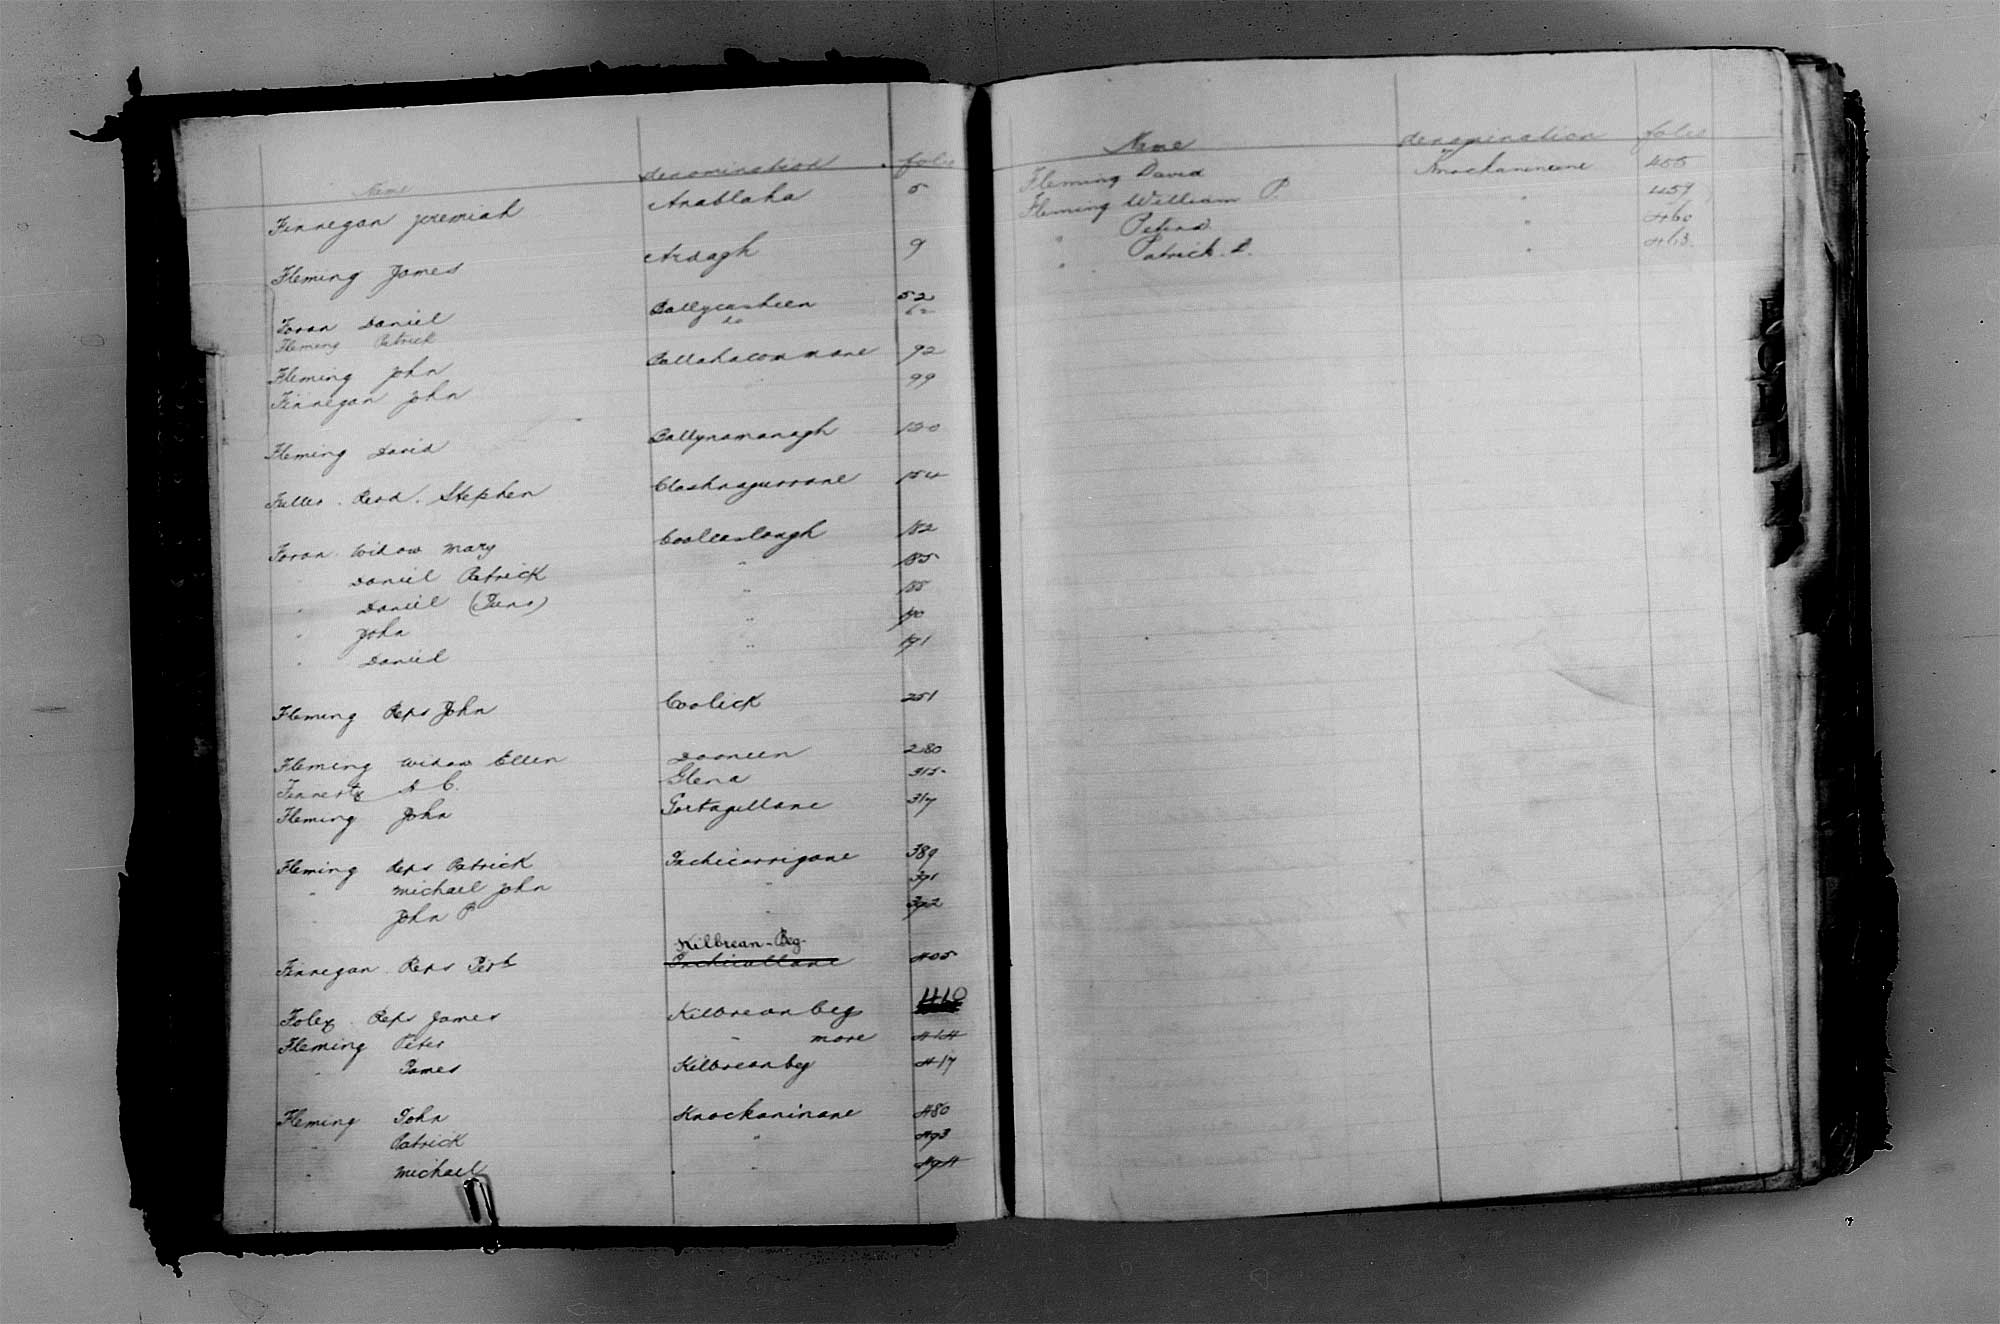 Name denomination folio
Finnegan Jeremiah Anablaha 5
Fleming James Ardagh 9
Foran Daniel Ballycasheen 52
Fleming Patrick do
Fleming John Ballahacommane 92
Finnegan John " 99
Fleming David Ballynamanagh 120
Fuller Revd. Stephen Clashnagurrane 154
Foran Widow Mary Cooleeslough 182
" Daniel Patrick " 185
" Daniel (Junr) " 188
" John " 190
" Daniel " 191
Fleming Reps John Coolick 251
Fleming Widow Ellen Dooneen 280
Finnerty A C. Glena 315
Fleming John Gortagullane 317
Fleming Reps Patrick Inchicorrigane 389
" Michael John " 391
" John P " 392
Kilbrean-Beg-
Finnegan Reps Inchicullane 405
Foley Reps James Kilbrean beg 410
Fleming Peter " more 414
" James Kilbrean beg 417
Fleming John Knockaninane 480
" Patrick " 493
" Michael " 494
Name denomination folio
Fleming David Knockaninane 455
Fleming William P. " 459
" " 460
" Patrick. " 463